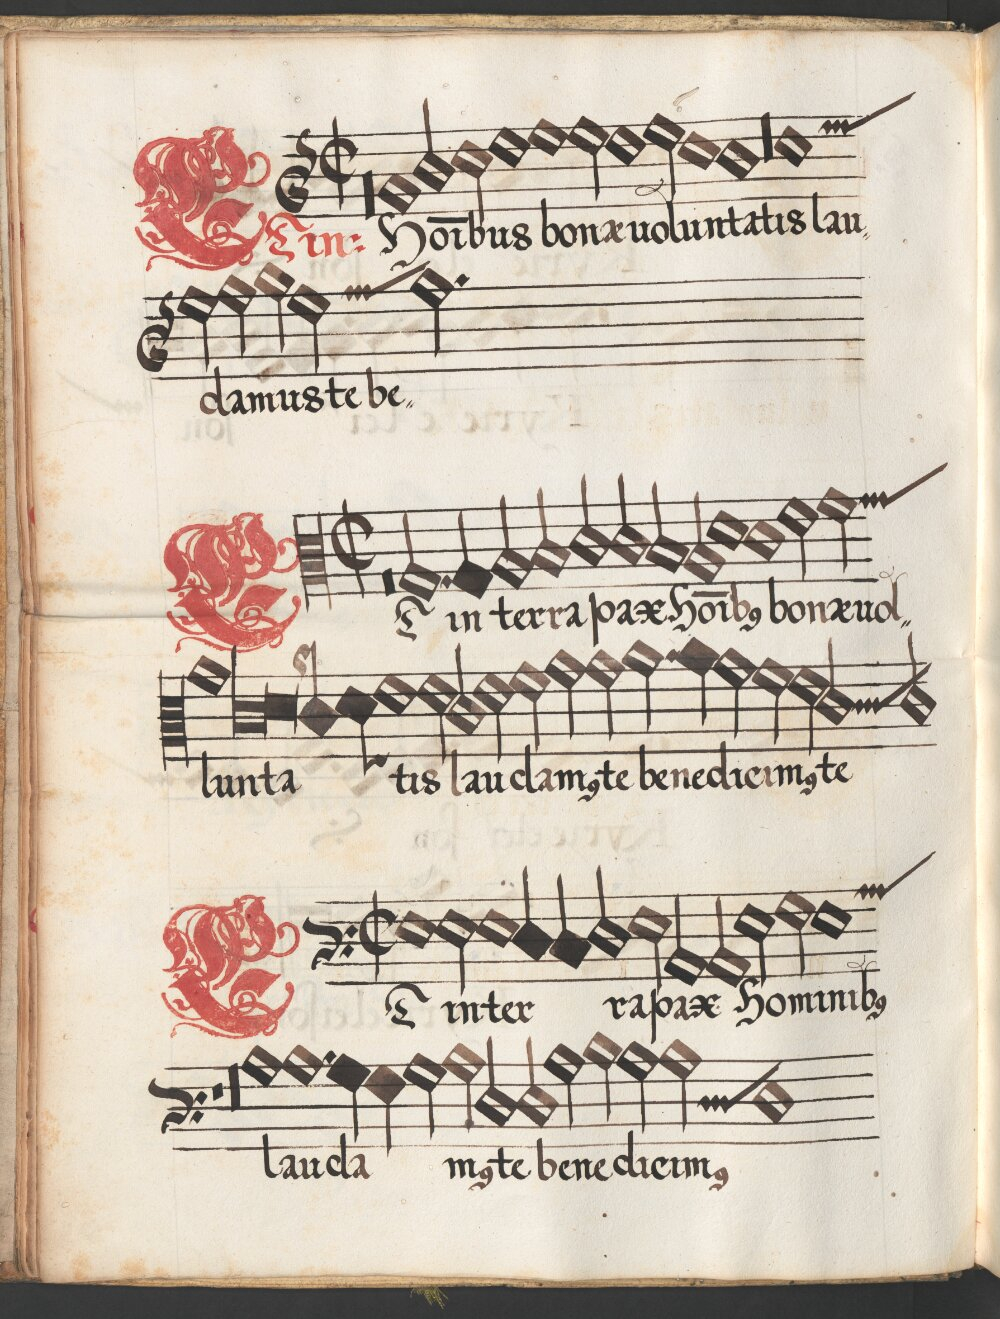 ET in: Hōibus bonæ uoluntatis lau„
damus te be„
ET in terra pax Hōibꝰ bonæ uol„
lunta tis laudamꝰ te benedicimꝰ te
ET in ter ra pax Hominibꝰ
lauda mꝰ te benedicimꝰ